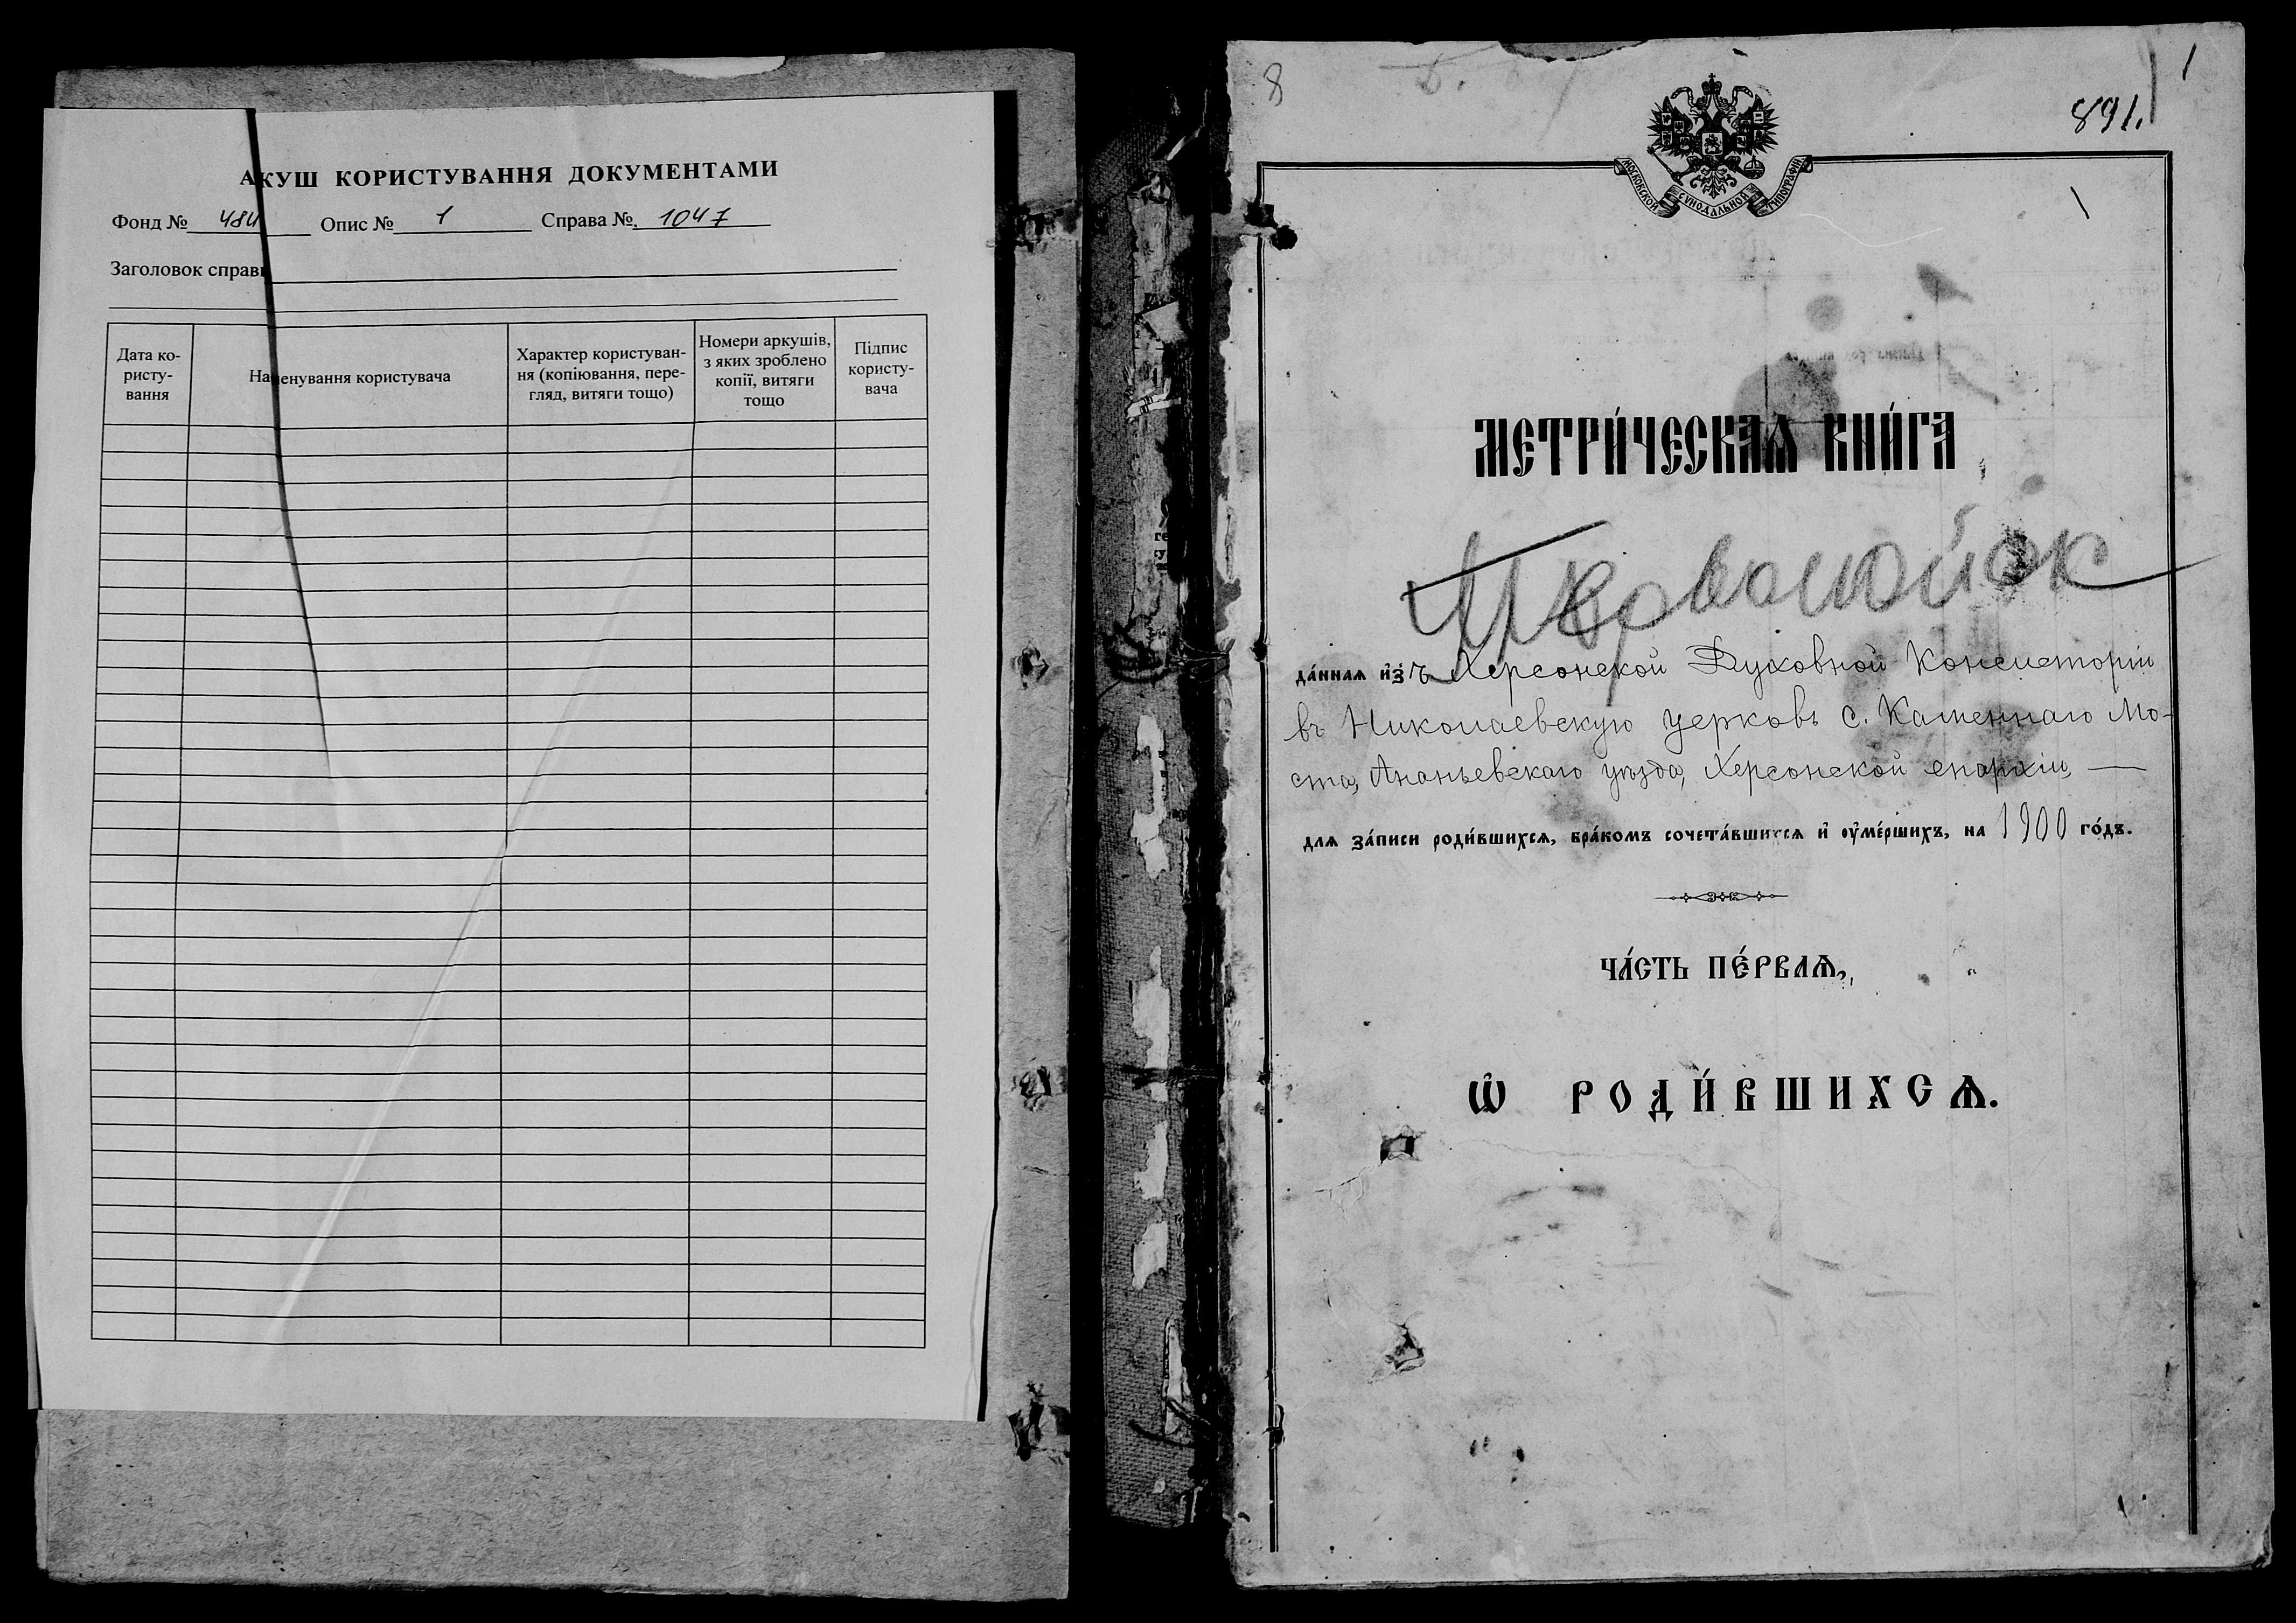 АКУШ КОРИСТУВАННЯ ДОКУМЕНТАМИ
Фонд № 484 Опис № 1 Справа № 1047
Заголовок справи
Дата ко-
ристу-
вання
На енування користувача
Характер користуван-
ня (копіювання, пере-
гляд, витяги тощо)
Номери аркушів,
з яких зроблено
копії, витяги
тощо
Підпис
користу-
вача
8
1
891.
МОСКОВСКОЙ СУНОДАЛЬНОЙ ТИПОГРАФІИ
МЕТРИ́ЧЕСКАѦ КНИ́ГА
да́ннаѧ и҆зъ Херсонской Духовной Консисторіи
въ Николаевскую церковь с. Каменнаго Мо-
ста, Ананьевскаго уѣзда, Херсонской епархіи, —
длѧ за́писи роди́вшихсѧ, бра́комъ сочета́вшихсѧ и҆ оу҆ме́ршихъ, на 1900 го́дъ.
ЧА́СТЬ ПЕ́РВАѦ,
Ѡ҆ РОДИ́ВШИХСѦ.